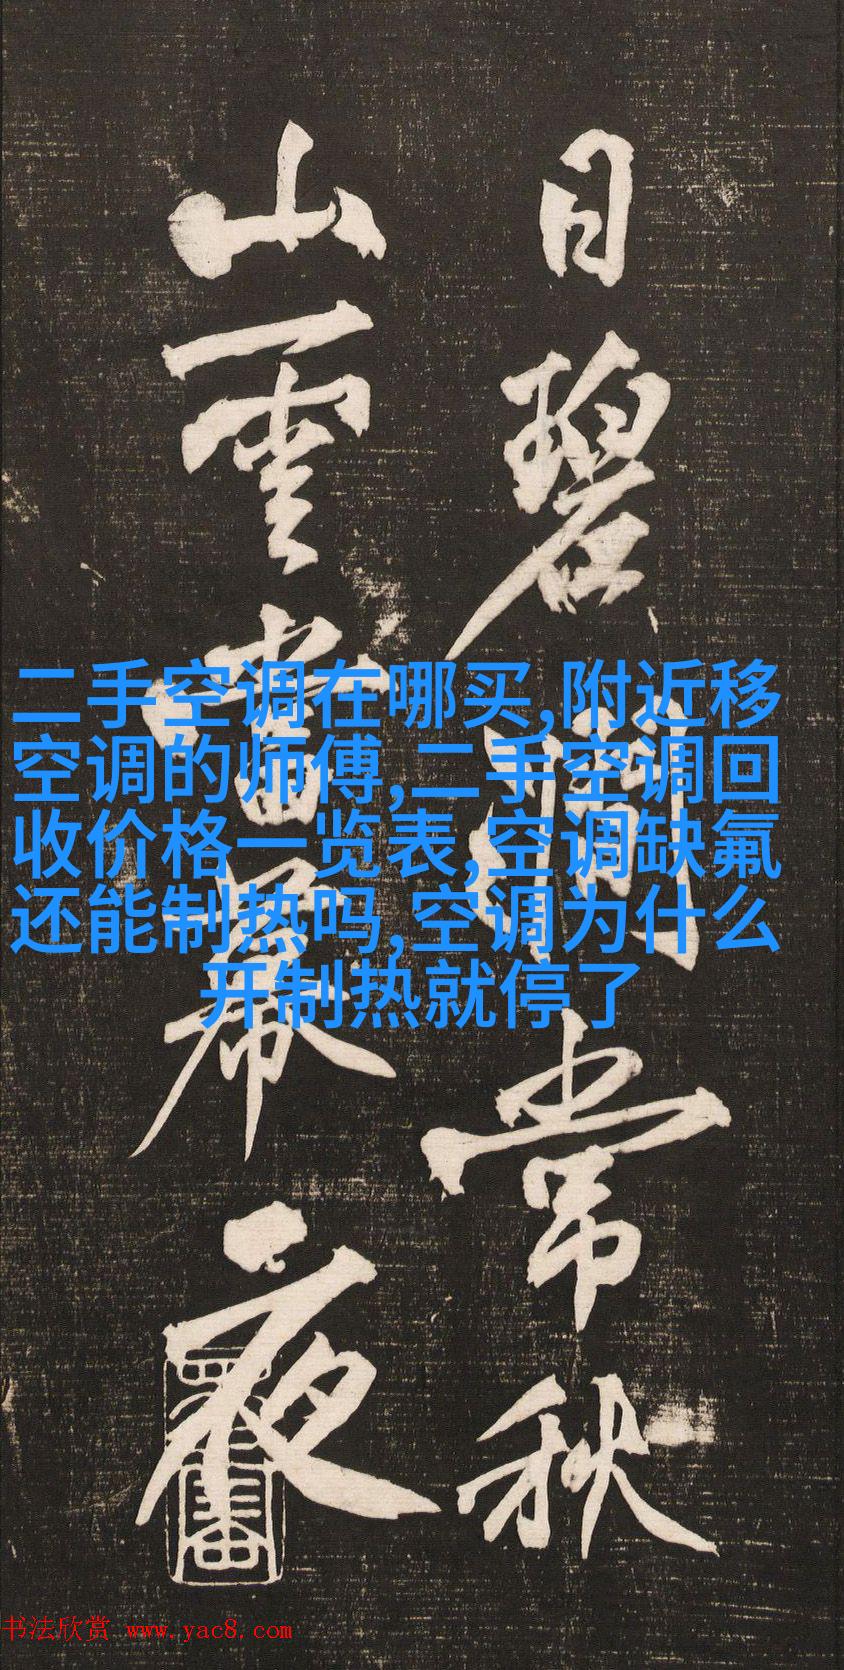 日碧澗常秋
山雲當幕夜
二手空调在哪买,附近移
空调的师傅,二手空调回
收价格一览表,空调缺氟
还能制热吗,空调为什么
开制热就停了
书法欣赏 www.yac8.com